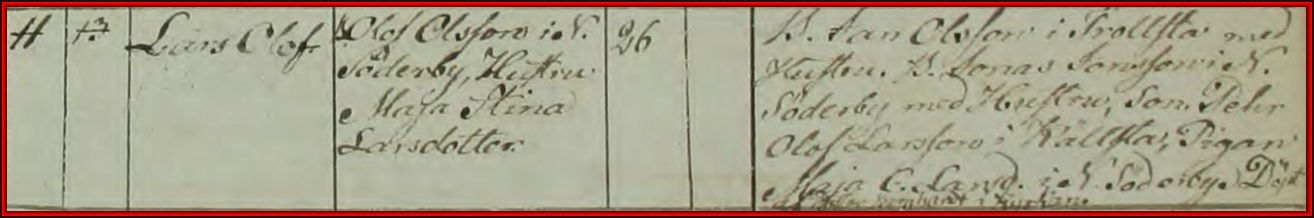 11 13 Lars Olof
Olof Olsson i N.
Söderby, Hustru
Maja Stina
Larsdotter.
26
B. Jan Olsson i Trollsta med
Hustru. B. Jonas Jonsson i N.
Söderby med Hustru, Son. Pehr
Olof Larsson i Källsta, Pigan
Maja C. Larsd. i N. Söderby. Döpt
i Kyrkan.